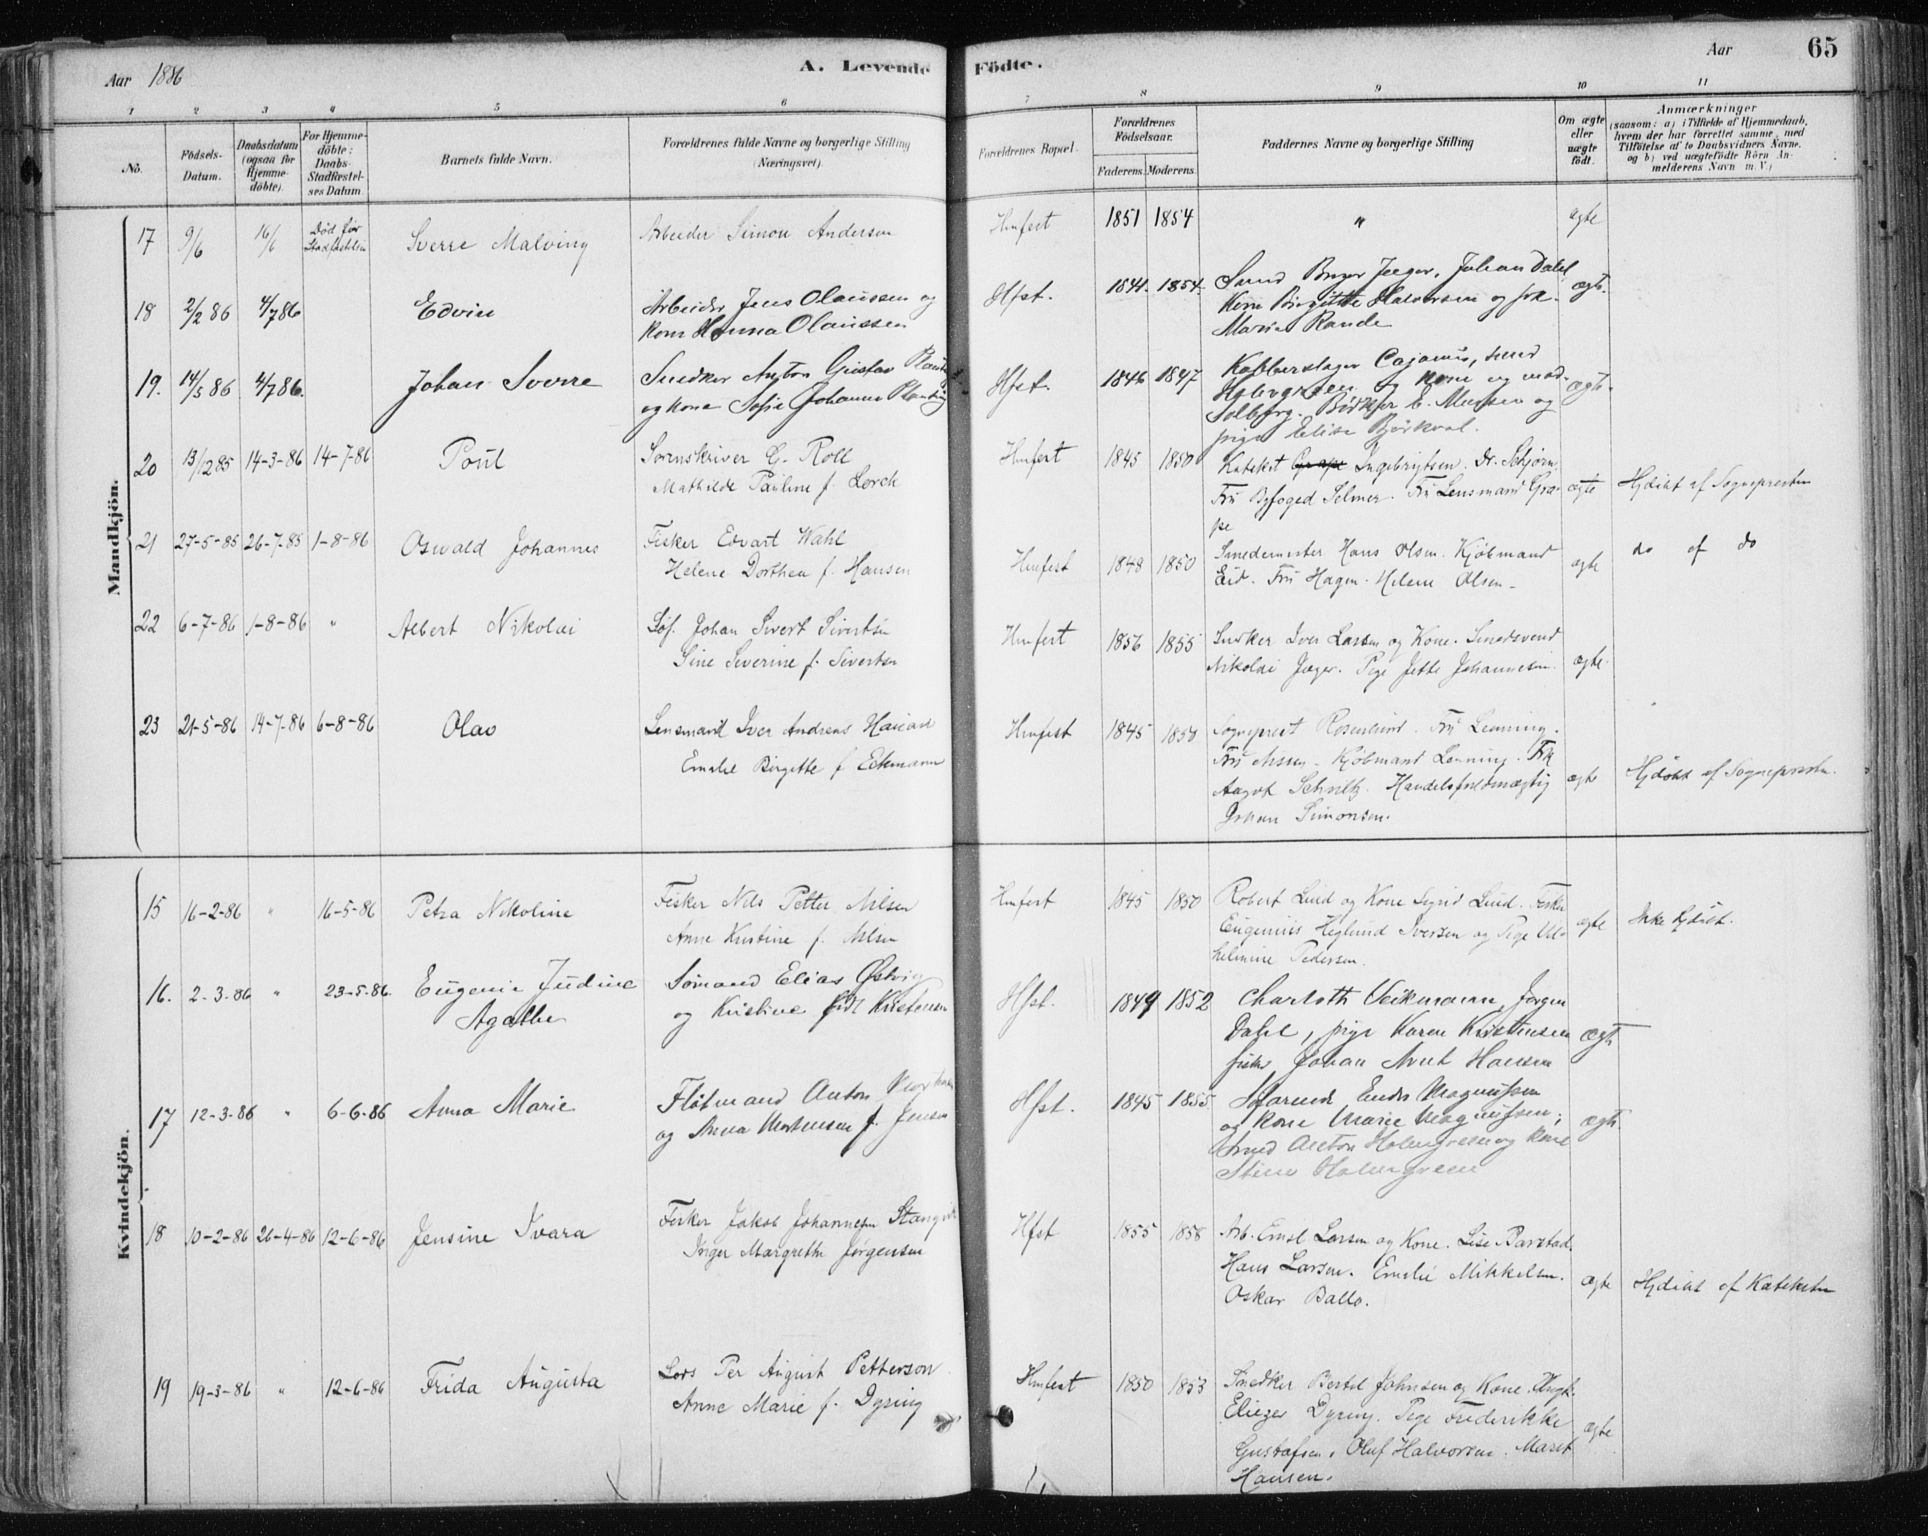 Aar 1886
A. Levende Födte.
Aar
65
1 2 3 4 5 6 7 8 9 10 11
No.
Födsels-Datum.
Daabsdatum (ogsaa for Hjemmedöbte).
For Hjemmedöbte: Daabs-Stadfæstelses Datum
Barnets fulde Navn.
Forældrenes fulde Navne og borgerlige Stilling (Næringsvei).
Forældrenes Bopæl.
Forældrenes Födselsaar.
Faderens. Moderens.
Faddernes Navne og borgerlige Stilling
Om ægte eller uægte födt.
Anmærkninger
(saasom: a) i Tilfælde af Hjemmedaab, hvem der har forrettet samme, med Tilföielse af to Daabsvidners Navne. og b) ved uægtefödte Börn Anmelderens Navn m.V.)
Mandkjön.
17 9/6 16/6 Død før Sverre Malving Arbeider Simon Andersen Hmfest 1851 1854 " ægte
18 2/2 86 4/7 86 Edvin Arbeider Jens Olaussen og
Kone Hanna Olaussen Hfst. 1841. 1854. Smed Jæger. Johan Dahl
Kone Birgitte Halvorsen og
Maria Rande ægte.
19. 14/5 86 4/7 86. Johan Sverre Snedker Anton Gustav
og Kone Sofie Johanna Hfst. 1846 1847 Kobberslager Cajanus, smed
Holmgreen og Kone og
Solberg. Bødker E. og
pige Elise ægte.
20 13/12 85 14-3-86 14-7-86 Poul Sorenskriver G. Roll
Mathilde Pauline f. Lorck Hmfest 1845 1850 Katekst Ingebrigtsen. Dr. Schjørn.
Fru Byfoged Selmer. Fru Lensmand Gra-
pe ægte Hjdøbt af Sognepresten
21 27-5-85 26-7-85 1-8-86 Oswald Johannes Fisker Edvart Wahl
Helene Dorthea f. Hansen Hmfest 1848 1850 Smedemester Hans Olsen. Kjøbmand
Eid. Fru Hagen. Helene Olsen ægte do af do
22 6-7-86 1-8-86 " Albert Nikolai Søf. Johan Sivert Sivertsen
Sine Severine f. Sivertsen Hmfest 1856 1855 Snedker Iver Larsen og Kone. Smedsvend
Nikolai Jæger. Pige Jette Johannesen. ægte.
23 21-5-86 14-7-86 6-8-86 Olav Lensmand Iver Andreas
Emelie Birgitte f. Eckmann Hmfest 1845 1858 Sogneprest Rosenlund. Fru Lenning.
Fru Nissen. Kjøbmand Lenning. Frk
Aagot Schultz. Handelsfuldmægtig
Johan Simonsen. ægte Hjdøbt af Sognepresten.
Kvindekjön.
15 16-2-86 " 16-5-86 Petra Nikoline Fisker Nils Petter Nilsen
Anne Kristine f. Nilsen Hmfest 1845 1850 Robert Lund og Kone Sigrid Lund. Fisker
Eugenius Heglund Iversen og Pige Vil-
helmine Pedersen. ægte Ikke Hjdøbt.
16. 2-3-86 " 23-5-86. Eugenie Judine
Agathe Sømand Elias Østvig
og Kristine født Kristensen Hfst. 1849 1852 Charloth Veikmann, Jørgen
Dahl, pige Karen Kristensen
fisker Johan Arnt Hansen ægte
17 12-3-86 " 6-6-86 Anna Marie Fløtmand Anton
og Anna Mortensen f. Jensen Hfst. 1845 1855 Magnussen
og Kone Marie Magnussen;
Smed Anton Holmgreen og Kone
Stine Holmgreen ægte
18 10-2-86 26-4-86 12-6-86 Jensine Ivara Fisker Jakob Johannesen
Inger Margrethe Jørgensen Hfst 1855 1858 Arb. Emil Larsen og Kone. Lise Barstad.
Hans Larsen. Emelie Mikkelsen.
Oskar Ballo. ægte Hjdøbt af Kateketen
19 19-3-86 " 12-6-86 Frida Augusta Lods Per August Petterson
Anne Marie f. Dyring Hmfest 1850 1853 Snedker Bertel Johnsen og Kone. Ungk.
Eliezer Dyring. Pige Frederikke
Gustafsen. Oluf Halvorsen. Marit
Hansen. ægte